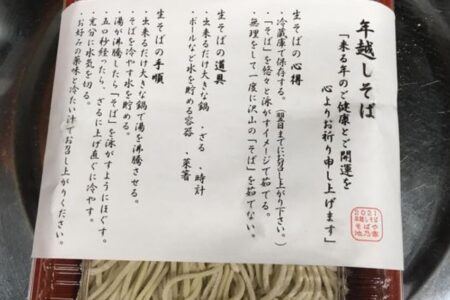 年越しそば
「来る年のご健康とご開運を
心よりお祈り申し上げます」
生そばの心得
・冷蔵庫で保存する。(翌日までにお召し上がり下さい。)
・「そば」を悠々と泳がすイメージで茹でる。
・無理をして一度に沢山の「そば」を茹でない。
生そばの道具
・出来るだけ大きな鍋 ・ざる ・時計
・ボールなど水を貯める容器 ・菜箸
生そばの手順
・出来るだけ大きな鍋で湯を沸騰させる。
・そばを冷やす水を貯める。
・湯が沸騰したら「そば」を泳がすようにほぐす。
・五〇秒経ったら、ざるに上げ直ぐに冷やす。
・充分に水気を切る。
・お好みの薬味と冷たい汁でお召し上がりください。
2021
年越しそば
そばや
池乃家